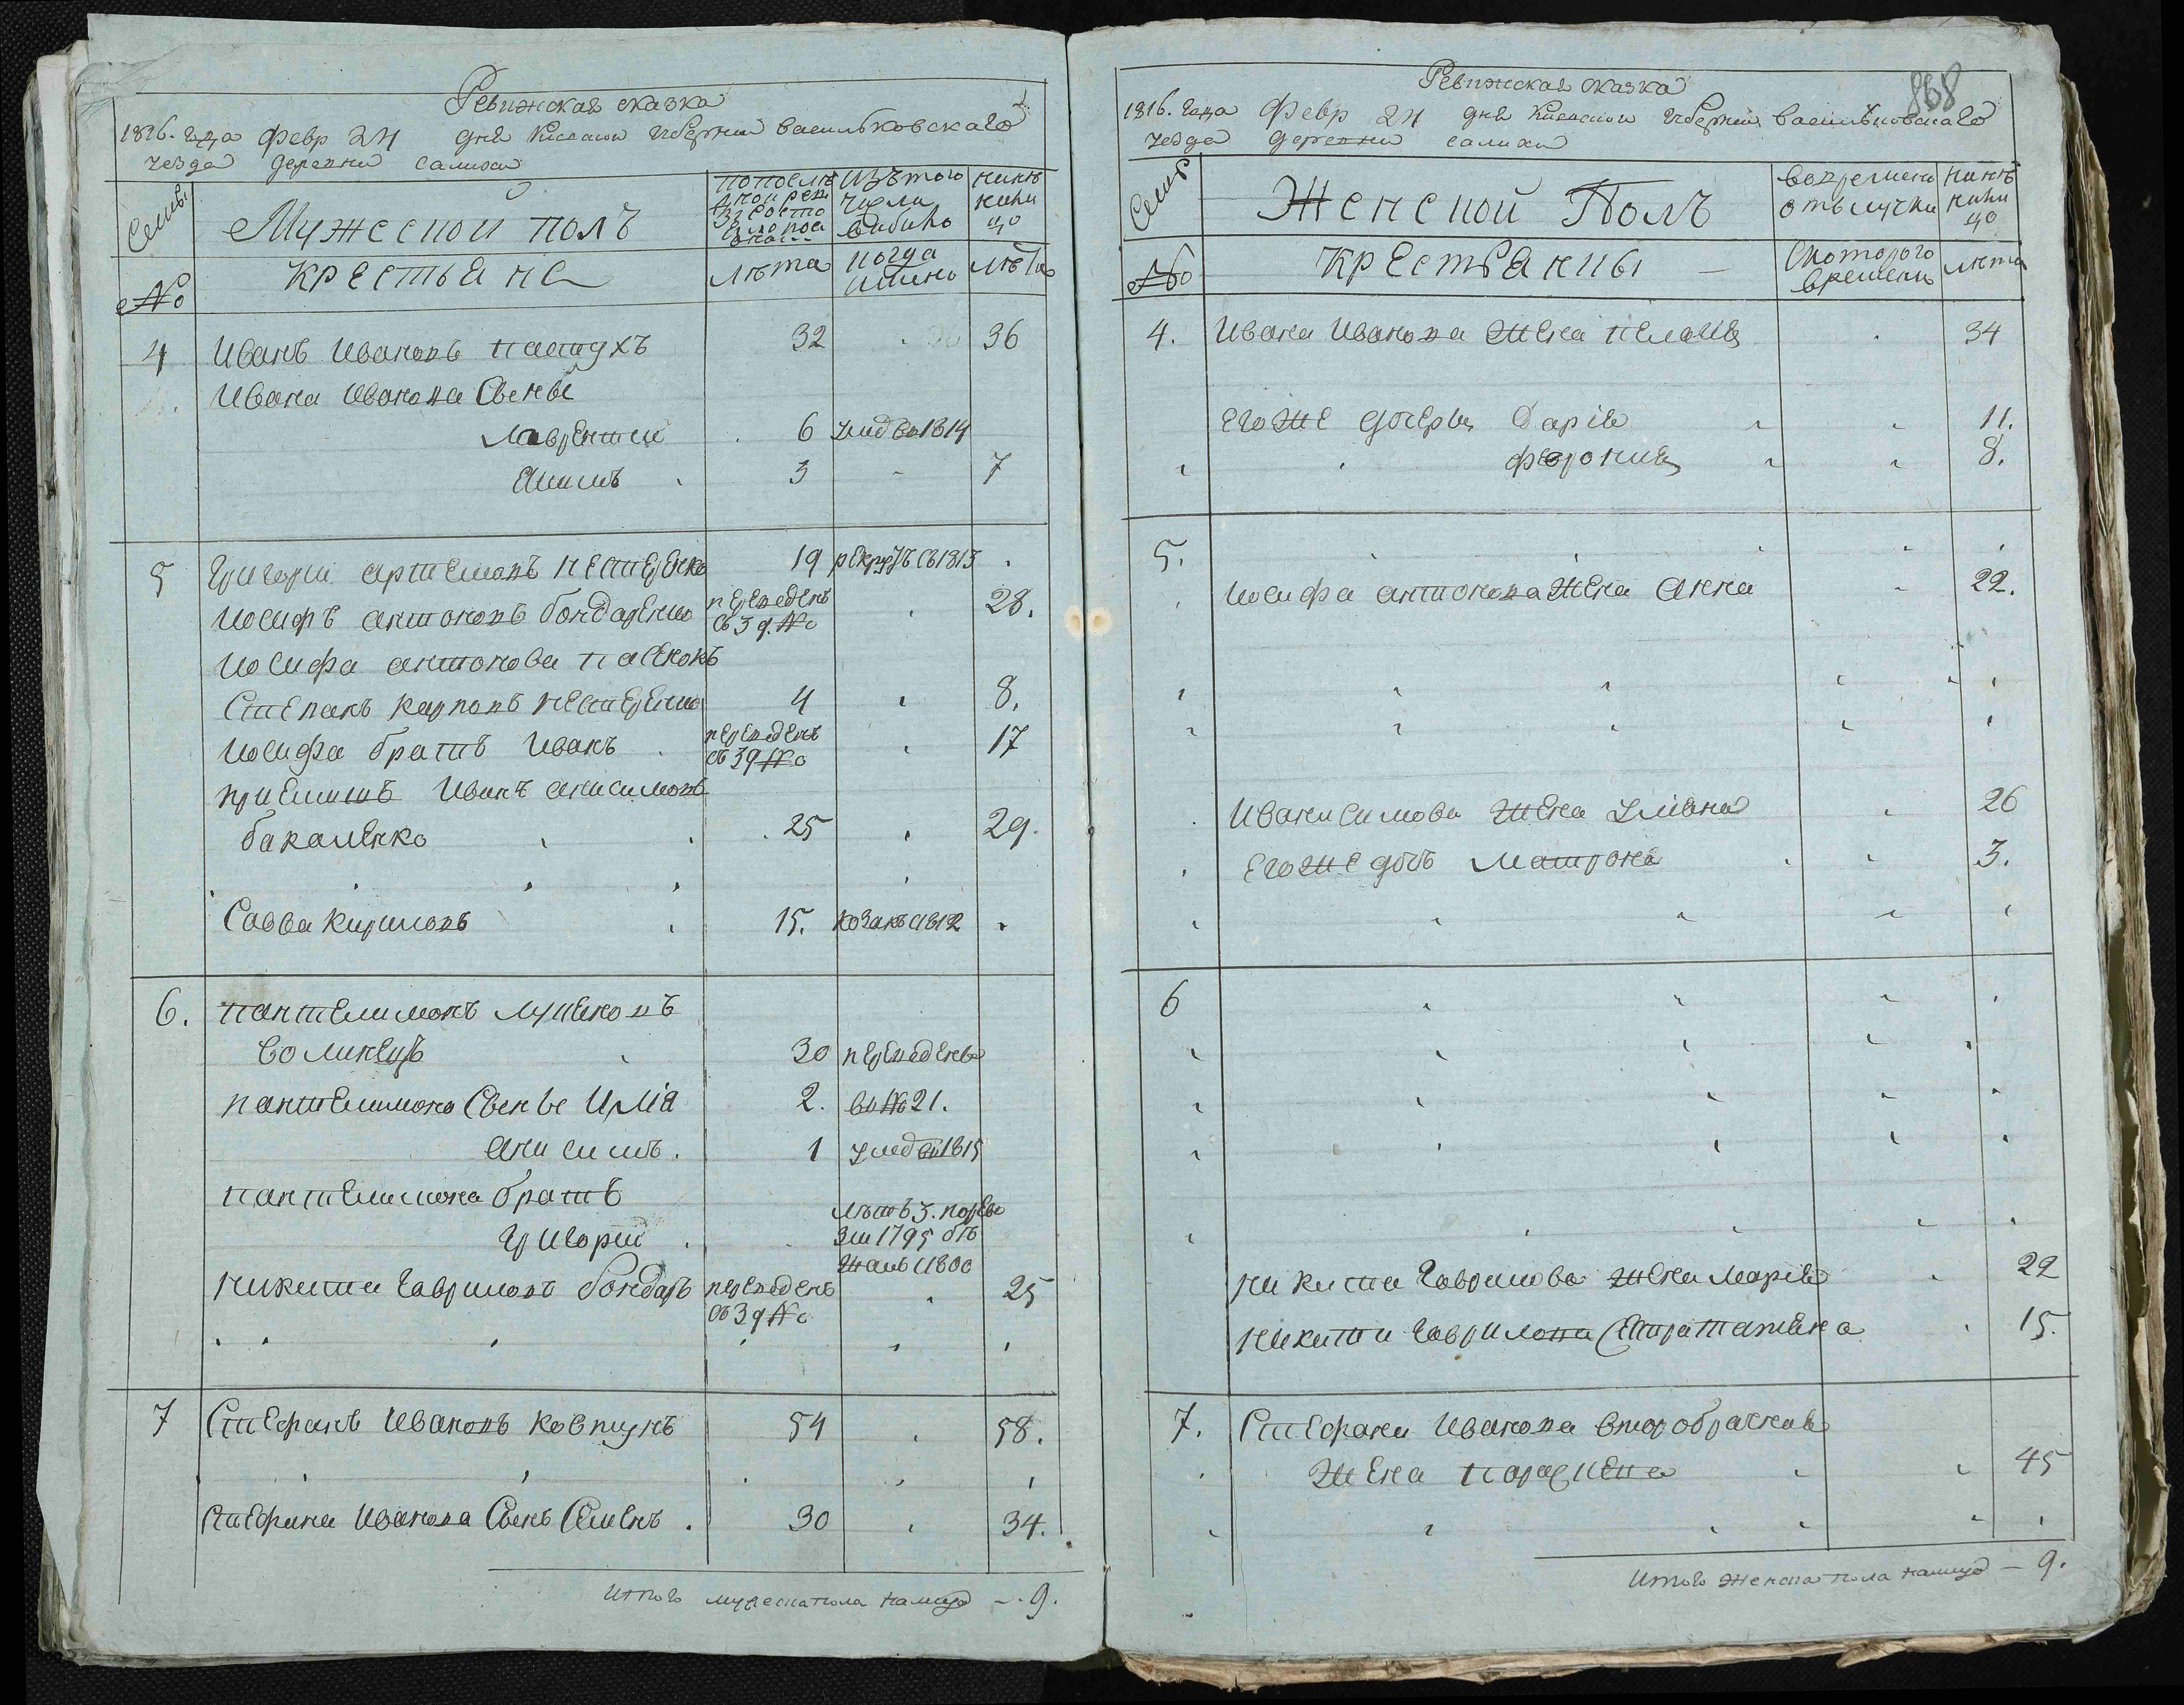 Ревижская сказка
1816. года Февр 24 дня Киевской Губернии Васильковского
уезда деревни Салихи
Семьи
Мужеской полъ
изъ того числа выбыло
ныне на лицо
№
Крестьяне
лета
когда имено
лета
4 Иванъ Ивановъ пастухъ 32 36
Ивана Иванова Сыны
Лаврентий 6 умер в 1814
Екимъ 3 7
5 Григорий Артемовъ Нестеренко 19 рекрутъ с 1813
Иосифъ Антоновъ бондаренко переведенъ съ 39 № 28.
Иосифа Антонова пасынокъ
Степанъ Карповъ Нестеренко 4 8.
Иосифа братъ Иванъ переведенъ съ 39 № 17
приемышъ Иванъ Анисимовъ
бакаленко 25 29.
Савва Кириловъ 15. козакъ с 1812
6. пантелимонъ
Солинецъ 30 переведены
пантелимона Сыны Илiя 2. в № 21.
Анисимъ. 1 умер в 1815
пантелимона братъ
Григорий
летъ 3. по реви
зии 1795
1800
Никита Гавриловъ бондарь переведенъ съ 39 № 25
7 Стефанъ Ивановъ Ковтунъ 54 58.
Стефана Иванова Сынъ Семенъ. 30 34.
Итого мужеска пола налицо - 9.
868
Ревижская сказка
1816. года Февр 24 дня Киевской Губернии Васильковского
уезда деревни Салихи
Семья
Женской Полъ
во временной отлучки
ныне на лицо
№
Крестьянки
С которого времени
лета
4. Ивана Иванова жена пелагия 34
Его же дочери Дарiя 11.
Феврония 8.
5.
Иосифа Антонова жена Анна 22.
жена Улiяна 26
Его же дочь Матрона 3.
6
Никиты Гаврилова жена Марiя 22
Никиты Гаврилова Сестра Татiяна 15.
7. Стефана Иванова второбрачная
Жена параскева 45
Итого женска пола налицо - 9.